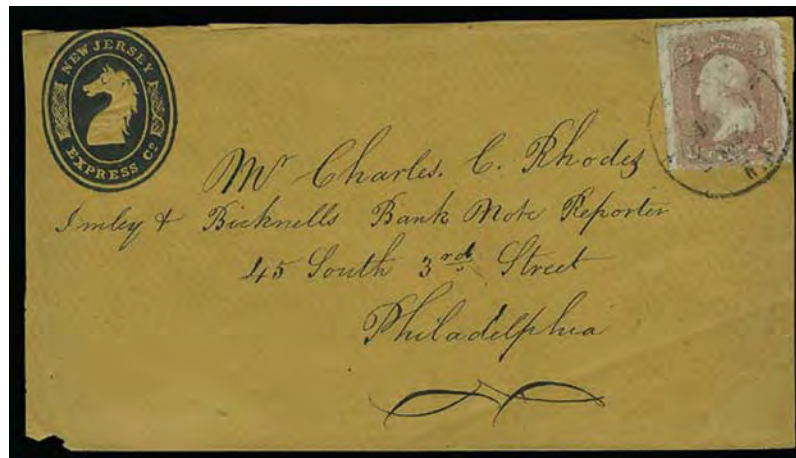 NEW JERSEY
EXPRESS Co
U.S. POSTAGE
3 3
Mr Charles. C. Rhodes
Imley & Bicknells Bank Note Reporter
45 South 3rd Street
Philadelphia